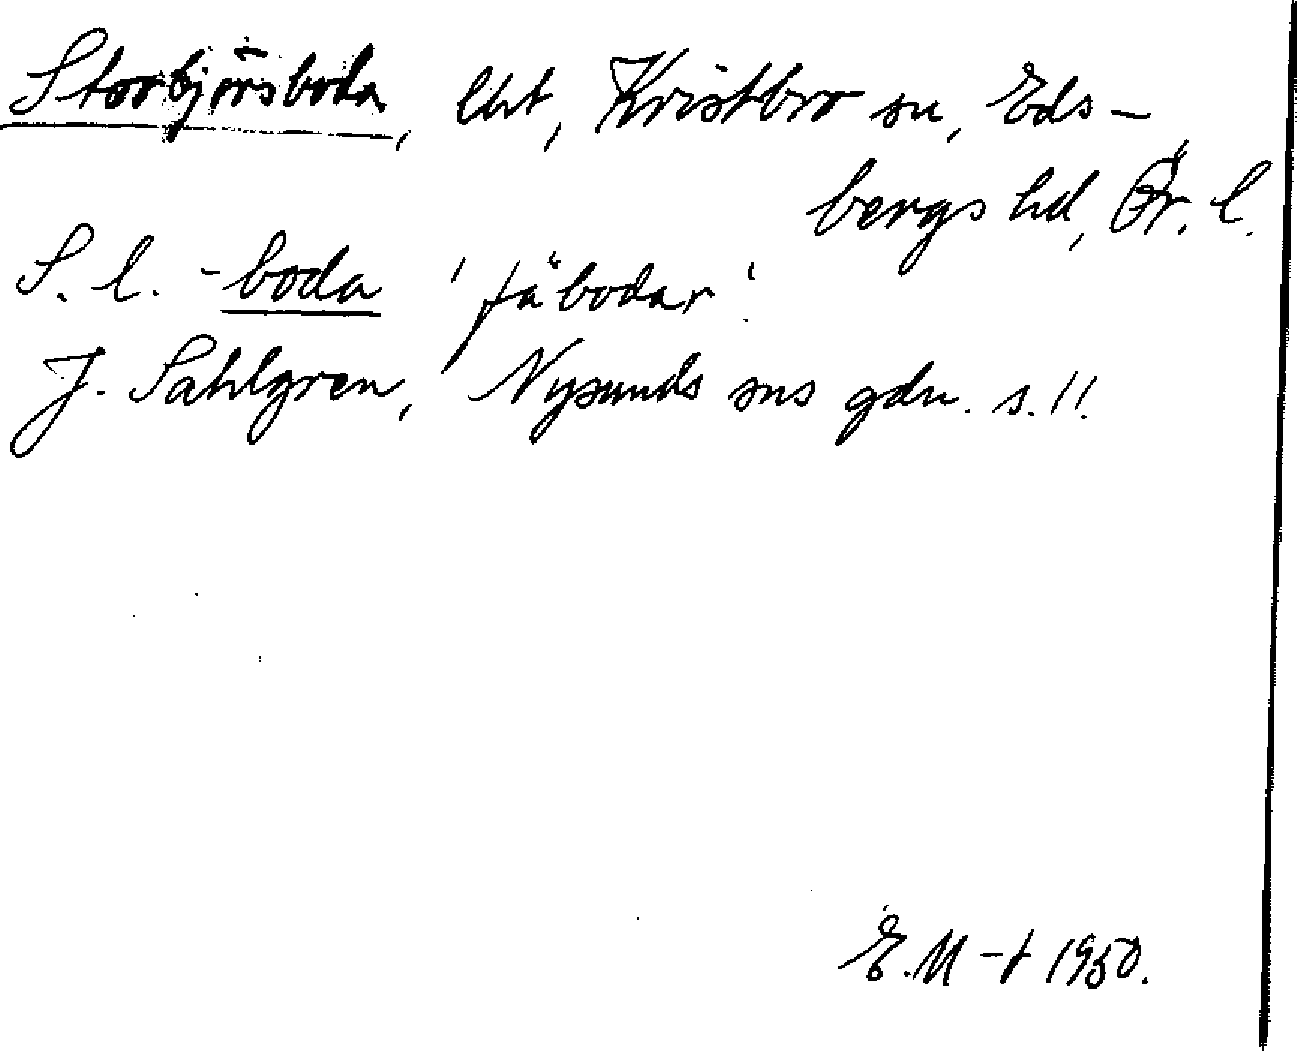 Storbjörsboda, lht, Kvistbro sn, Eds-
bergs hd, Ör. l.
S. l. -boda 'fäbodar'.
J. Sahlgren, Nysunds sns gdn. s. 11.
E. M-t 1950.